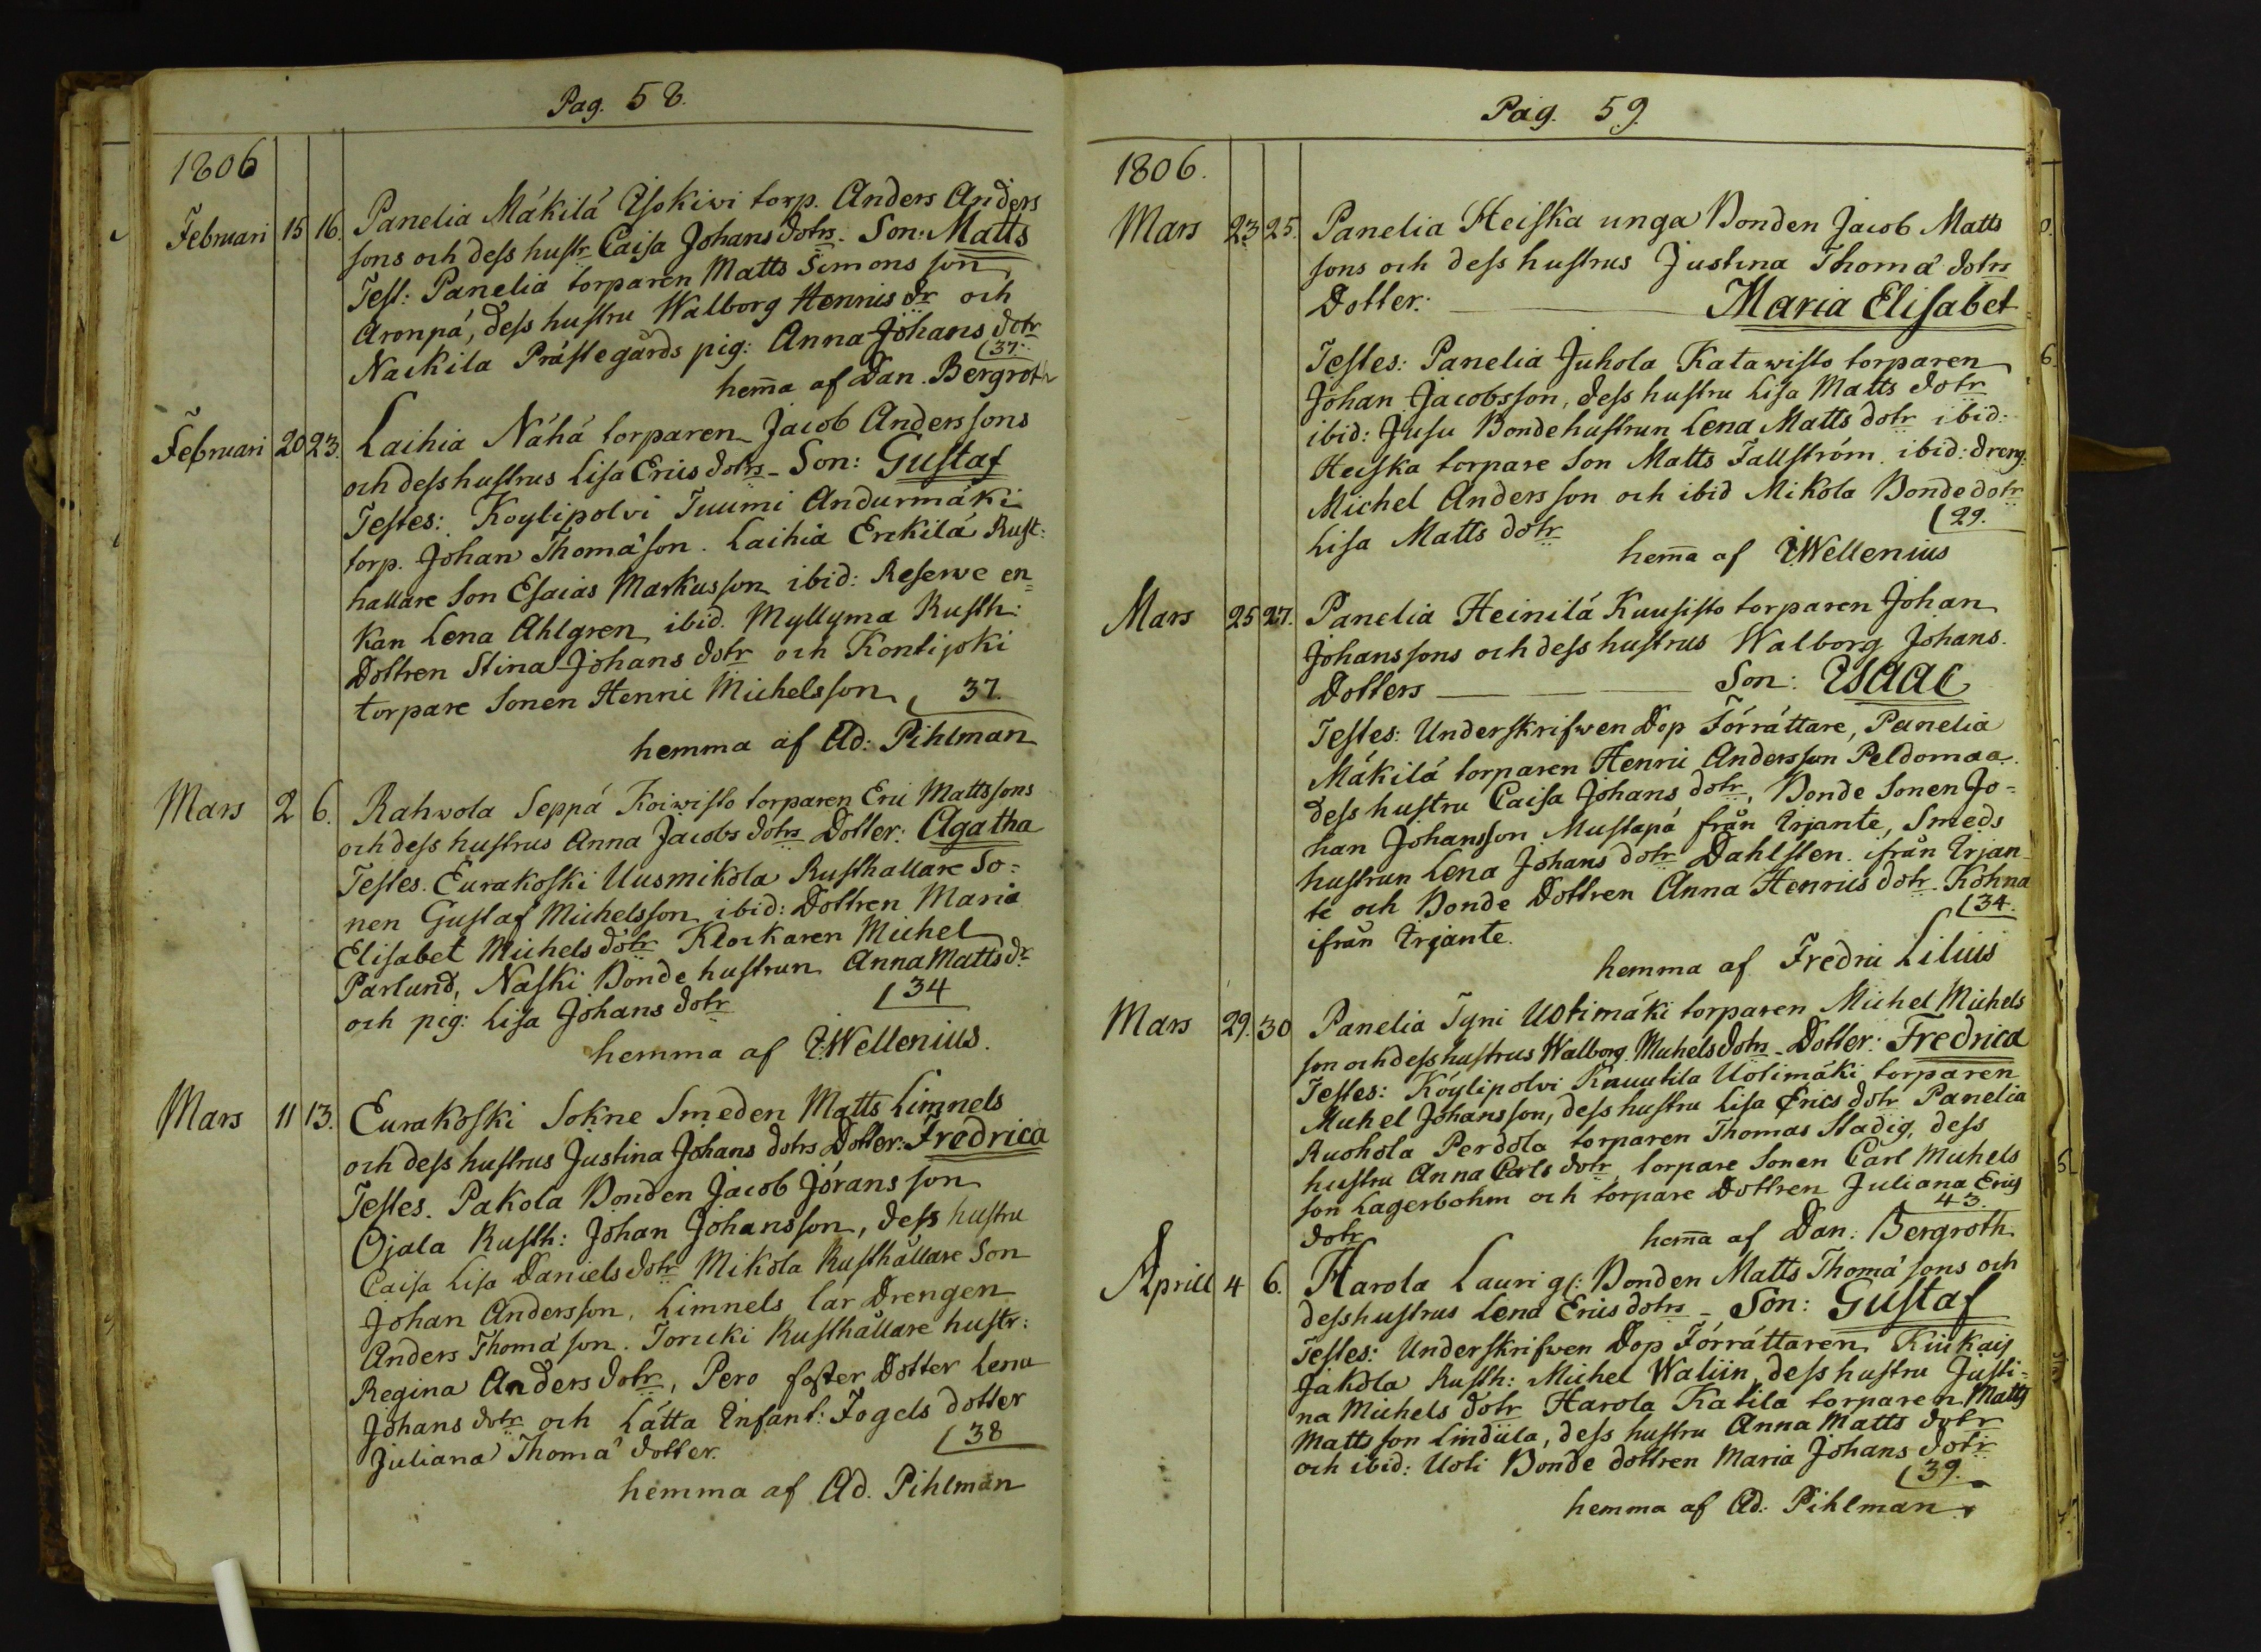 Pag. 58.
1806
Februari 15 16. Panelia Mäkilä Isokiwi torp. Anders Anders
sons och dess hustr Caisa Johans dotrs. Son: Matts
Test: Panelia torparen Matts Simons son
Aronpä, dess hustru Walborg Henrics dr och
Nackila Prästegårds pig: Anna Johans dotr
(37.
hem̄a af Dan. Bergroth
Februari 20 23. Laihia Nähä torparen Jacob Anderssons
och dess hustrus Lisa Erics dotrs - Son: Gustaf
Testes: Koylipolvi Tuumi Andurmäki
torp. Johan Thomä son. Laihia Erckilä Rust:
hallare Son Esaias Markusson ibid: Reserve en=
kan Lena Ahlgren ibid. Myllyma Rusth:
Dottren Stina Johans dotr och Kontijoki
torpare Sonen Henric Michelsson (37.
hemma af Ad: Pihlman
Mars 2 6. Rahwola Seppä Koiwisto torparen Eric Mattssons
och dess hustrus Anna Jacobs dotrs Dotter: Agatha
Testes. Eurakoski Uusmikola Rusthallare So=
nen Gustaf Michelsson ibid: Dottren Maria
Elisabet Michels dotr Klockaren Michel
Parlund, Naski Bonde hustrun Anna Matts dr
och pig: Lisa Johans dotr (34
hemma af I: Wellenius.
Mars 11 13. Eurakoski Sokne Smeden Matts Limnels
och dess hustrus Justina Johans dotrs Dotter: Fredrica
Testes. Pakola Bonden Jacob Jörans son
Ojala Rusth: Johan Johansson, dess hustru
Caisa Lisa Daniels dotr Mikola Rusthållare Son
Johan Andersson, Limnels lär Drengen
Anders Thomä son. Torcki Rusthållare hustr:
Regina Anders dotr, Pero foster Dotter Lena
Johans dotr och Lätta Infant: Fogels dotter
Juliana Thomä dotter. (38
hemma af Ad. Pihlman
Pag. 59.
1806.
Mars 23 25. Panelia Heiska unga Bonden Jacob Matts
sons och dess hustrus Justina Thomä dotrs
Dotter: Maria Elisabet
Testes: Panelia Juhola Katawisto torparen
Johan Jacobsson, dess hustru Lisa Matts dotr
ibid: Jusu Bondehustrun Lena Matts dotr ibid:
Heiska torpare Son Matts Tallström. ibid: dreng:
Michel Andersson och ibid Mikola Bondedotr
Lisa Matts dotr (29.
hem̄a af I: Wellenius
Mars 25 27. Panelia Heinilä Kuusisto torparen Johan
Johanssons och dess hustrus Walborg Johans
Dotters Son: Isaac
Testes: Underskrifwen Dop Förrättare, Panelia
Mäkilä torparen Henric Andersson Peldomaa.
dess hustru Caisa Johans dotr, Bonde Sonen Jo=
han Johansson Mustapä från Irjante, Smeds
hustrun Lena Johans dotr Dahlsten. ifrån Irjan-
te och Bonde Dottren Anna Henrics dotr Kohna
ifrån Irjante. (34.
hemma af Fredric Lilius
Mars 29. 30 Panelia Tyni Uotimäki torparen Michel Michels
son och dess hustrus Walborg Michels dotrs - Dotter: Fredrica
Testes: Köylipolvi Knuutila Uotimäki torparen
Michel Johansson, dess hustru Lisa Erics dotr Panelia
Ruohola Perdola torparen Thomas Stadig, dess
hustru Anna Carls dotr, torpare Sonen Carl Michels
son Lagerbohm och torpare Dottren Juliana Erics
dotr 43.
hem̄a af Dan: Bergroth
Aprill 4 6. Harola Lauri gl: Bonden Matts Thomä sons och
dess hustrus Lena Erics dotrs - Son: Gustaf
Testes: Underskrifwen Dop Förrättaren Kiukais
Jakola Rusth: Michel Waliin, dess hustru Justi=
na Michels dotr Harola Katila torparen Matts
Mattsson Lindula, dess hustru Anna Matts dotr
och ibid: Uoti Bonde dottren Maria Johans dotr
(39.
hemma af Ad: Pihlman.